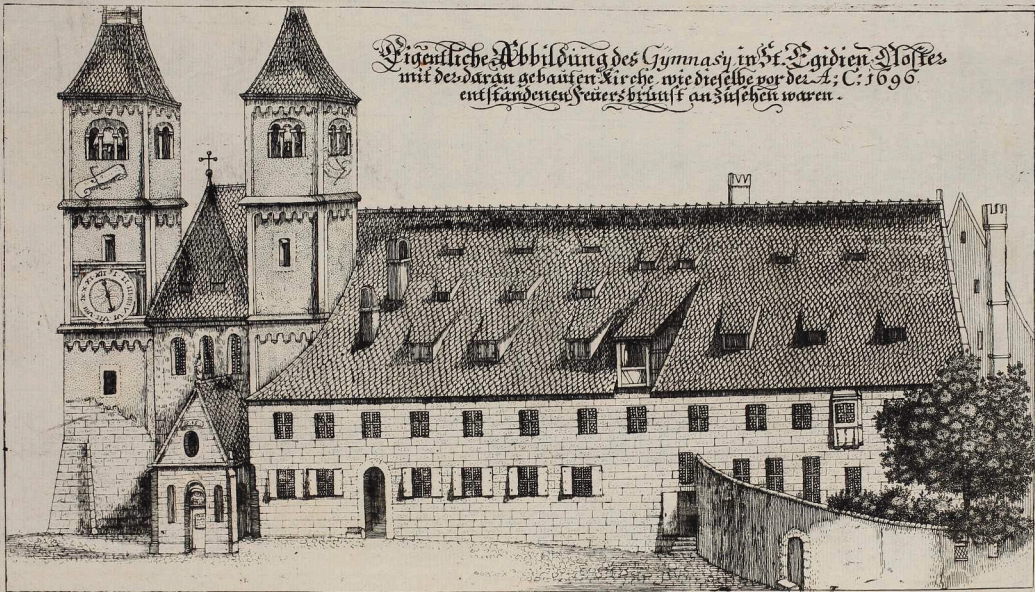 Eigentliche Abbildung des Gymnasy in St. Egidien Closter
mit der daran gebauten Kirche, wie dieselbe vor der A: C: 1696
entstandenen Feuersbrunst anzusehen waren.